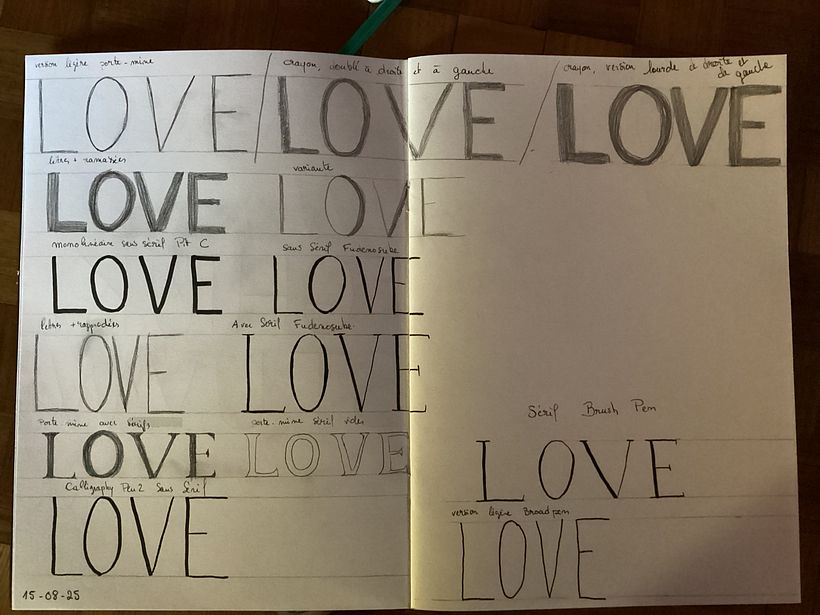 version légère porte-mine
LOVE
crayon, doublé à droite et à gauche
LOVE
crayon, version lourde à droite et
de gauche
LOVE
lettres + ramassées
LOVE
variante
LOVE
monolinéaire sans sérif Pitt C
LOVE
sans Sérif Fudenosuke
LOVE
lettres + rapprochées
LOVE
Avec Sérif Fudenosuke
LOVE
Porte-mine avec sérifs
LOVE
porte-mine sérif vides
LOVE
Calligraphy Pen 2 Sans Sérif
LOVE
Sérif Brush Pen
LOVE
version légère Broad pen
LOVE
15-08-25